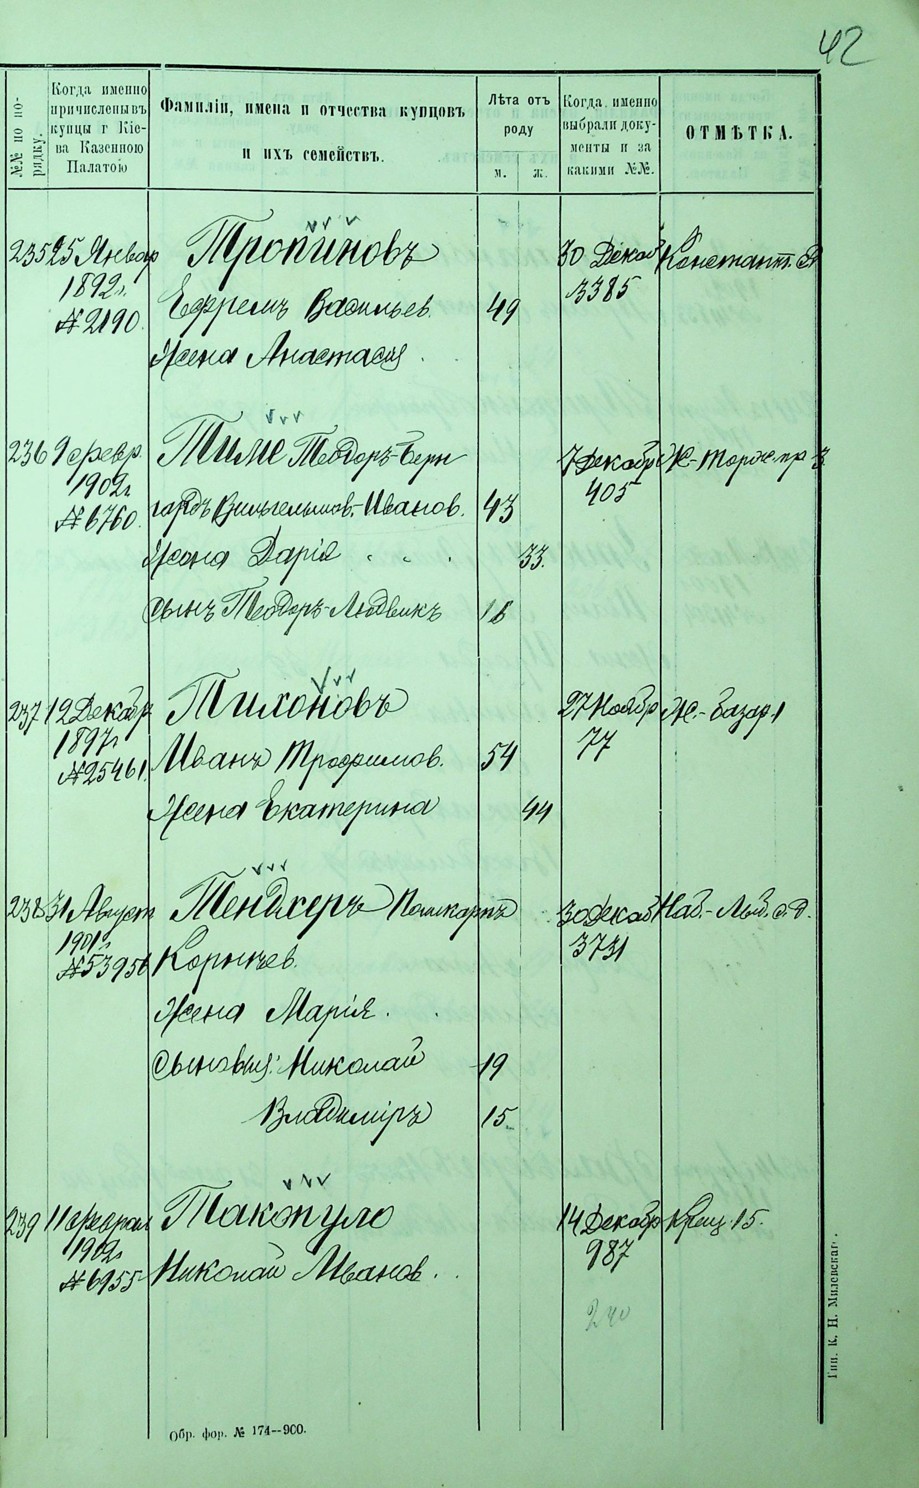 42
№№ по по-
рядку.
Когда именно
причислены въ
купцы г Кіе-
ва Казенною
Палатою
Фамиліи, имена и отчества купцовъ
и ихъ семействъ.
Лѣта отъ
роду
м. ж.
Когда именно
выбрали доку-
менты и за
какими №№.
ОТМѢТКА.
235 25 Январ Тропиновъ 30 Декаб Константи.
1892г. Ефремъ Васильев. 49 3385
№ 2190.
Жена Анастасія
236 9 февр. Тиме Теодоръ-Берн 7 Декабр Ж-Торж. пр
1902г 405
№ 6760. гардъ Вильгельмов.-Иванов. 43
Жена Дарія 33.
сынъ Теодоръ-Людвикъ 16
237 12 Декабр Тихоновъ 27 Ноябр Ж.-базар 1
1897г 77
№ 25461. Иванъ Трофимов. 54
Жена Екатерина 44
238 31 Август Тенджеръ 30 Декаб Наб.-Лыб. с. д.
1901г. 3731
№ 53956
Жена Марія.
сыновья: Николай 19
Владиміръ 15
239 11 Феврал Такопуло 14 Декабр Крещ. 15.
1902г 987
№ 6955 Николай Иванов.
240
Обр. фор. № 174--900.
Тип. К. Н. Милевскаг.